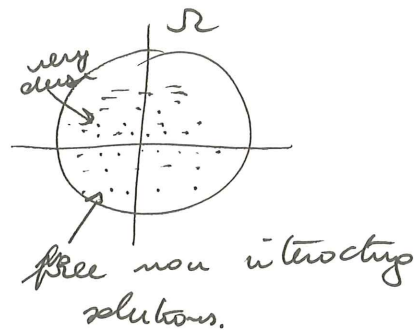 Ω
very
dense
free non interacting
solutions.